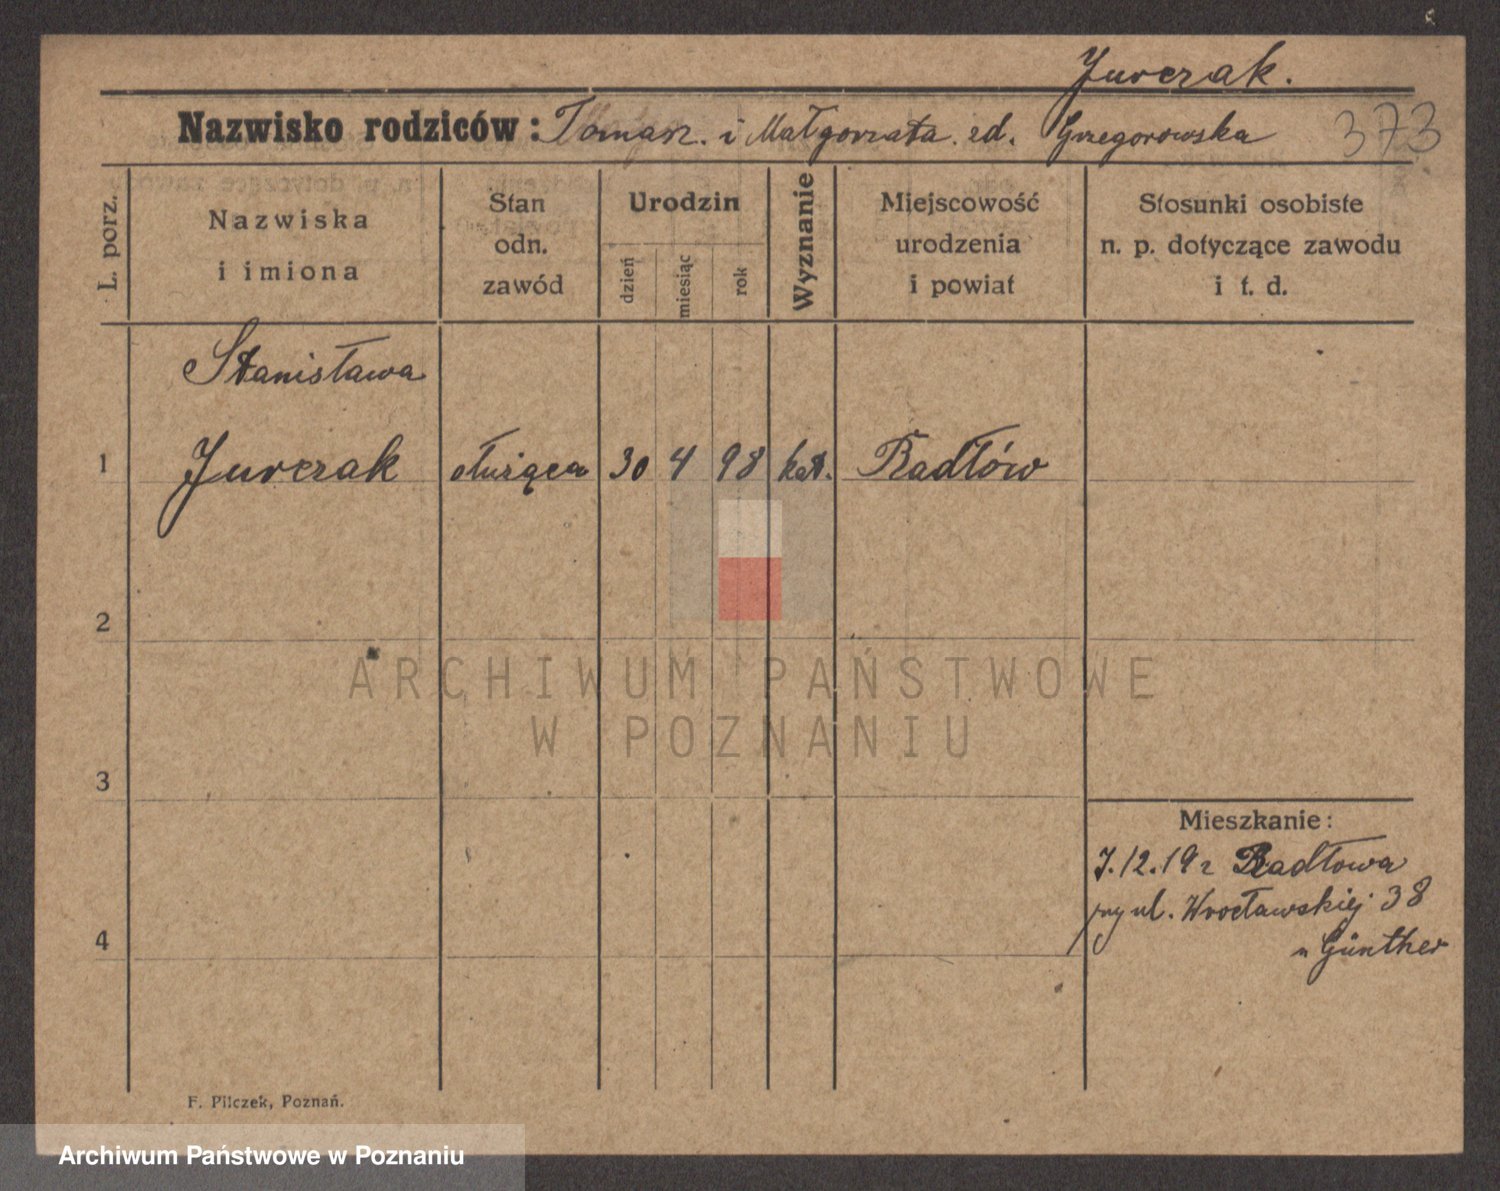 Jurczak.
Nazwisko rodziców: Tomasz. i Małgorzata. zd. Grzegorowska 373
L. porz.
Nazwiska
i imiona
Stan
odn.
zawód
Urodzin
dzień
miesiąc
rok
Wyznanie
Miejscowość
urodzenia
i powiat
Stosunki osobiste
n. p. dotyczące zawodu
i t. d.
Stanisława
1 Jurczak służąca 30 4 98 kat. Radłów
2
3
4
Mieszkanie:
7.12.19 z Radłowa
przy ul. Wrocławskiej 38
u Günther
F. Pilczek, Poznań.
ARCHIWUM PAŃSTWOWE
W POZNANIU
Archiwum Państwowe w Poznaniu